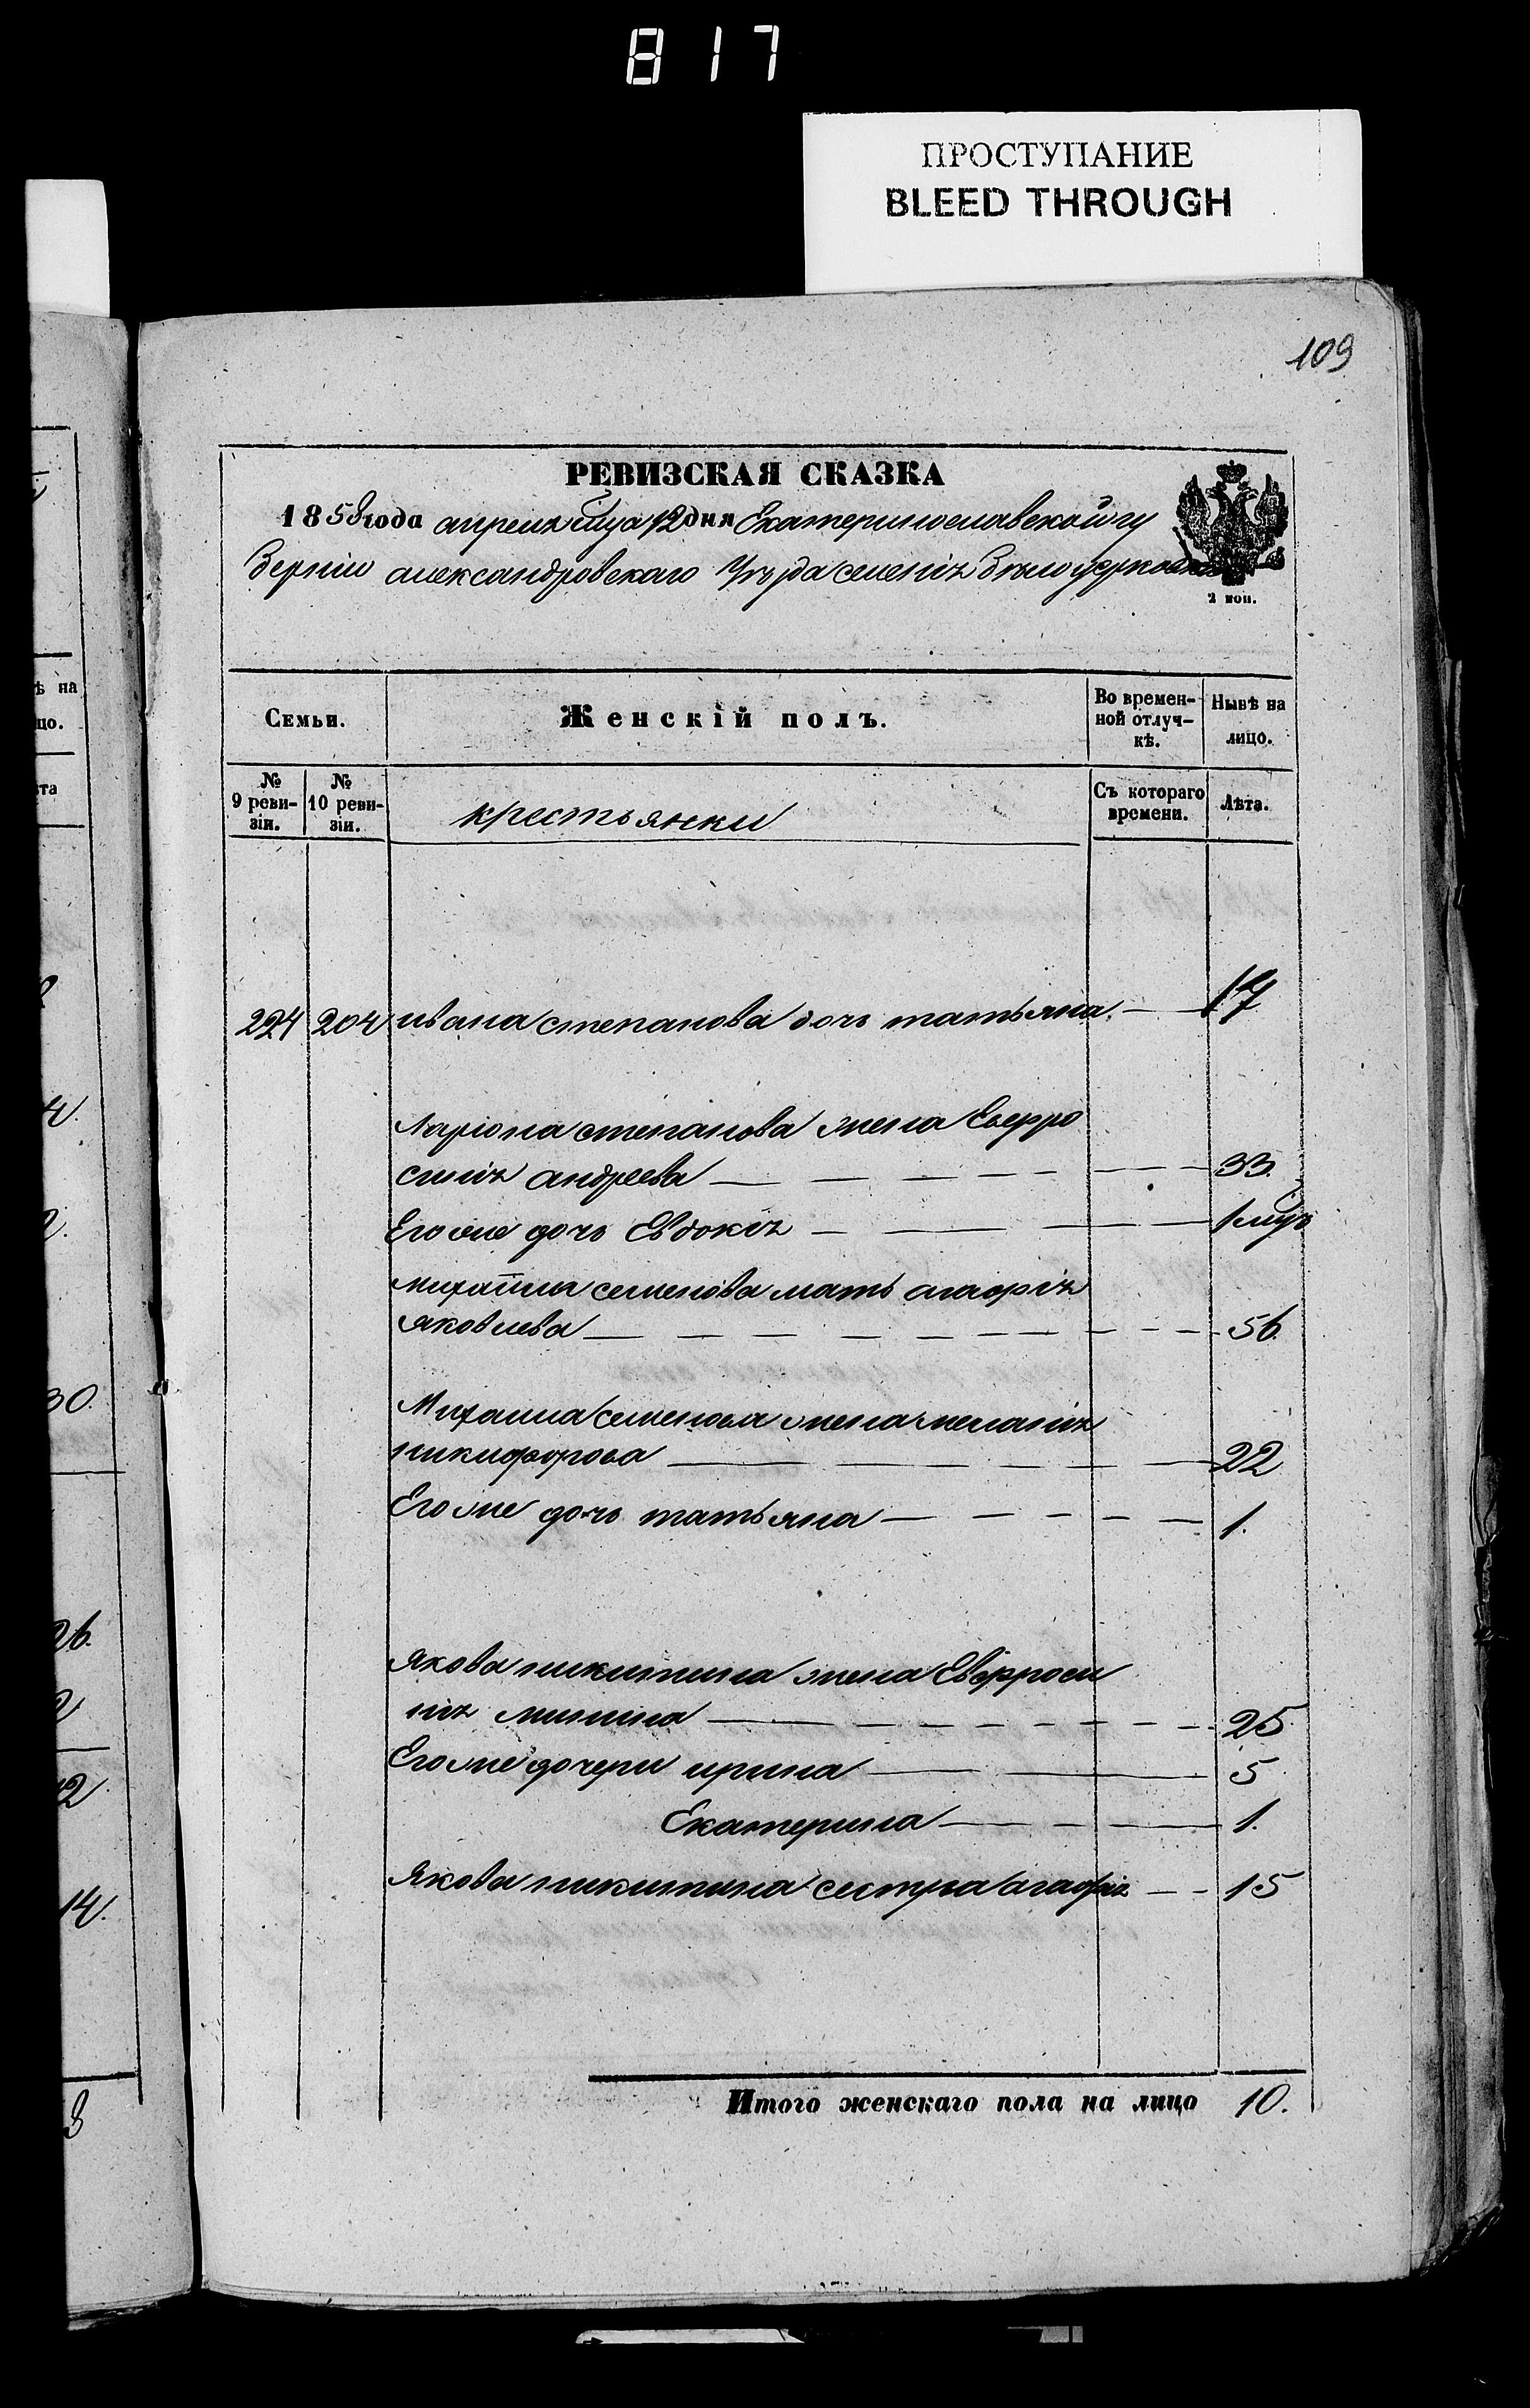 817
ПРОСТУПАНИЕ
BLEED THROUGH
109
РЕВИЗСКАЯ СКАЗКА
1858 года апреля мца 12 дня Екатеринославской гу
берніи александровскаго уѣзда селенія Бѣлоцерковки
2 коп.
Семьи.
Женскій полъ.
Во времен-
ной отлуч-
кѣ.
Нынѣ на
лицо.
№
9 реви-
зіи.
№
10 реви-
зіи.
крестьянки
Съ котораго
времени.
Лѣта.
224 204 ивана степанова дочь татьяна 17
Ларіона степанова жена Евфро
синія андреева 33.
Его же дочь Евдокія
михайлы семенова мать агафія
яковлева 56.
Михаила семенова жена меланія
никифорова 22
Его же дочь татьяна 1.
Якова никитина жена Евфроси
нія минина 25
Его же дочери ирина 5
Екатерина 1.
Якова никитина сестра агафія 15
Итого женскаго пола на лицо 10.
ѣ на
цо.
та
4.
30.
26.
2
42
14.
3